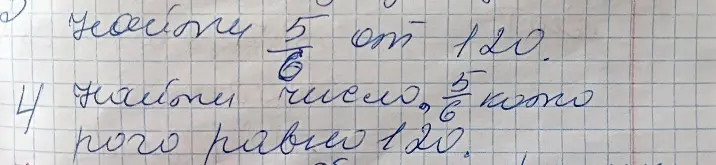 Найти 5/6 от 120.
4 Найти число, 5/6 кото
рого равно 120.